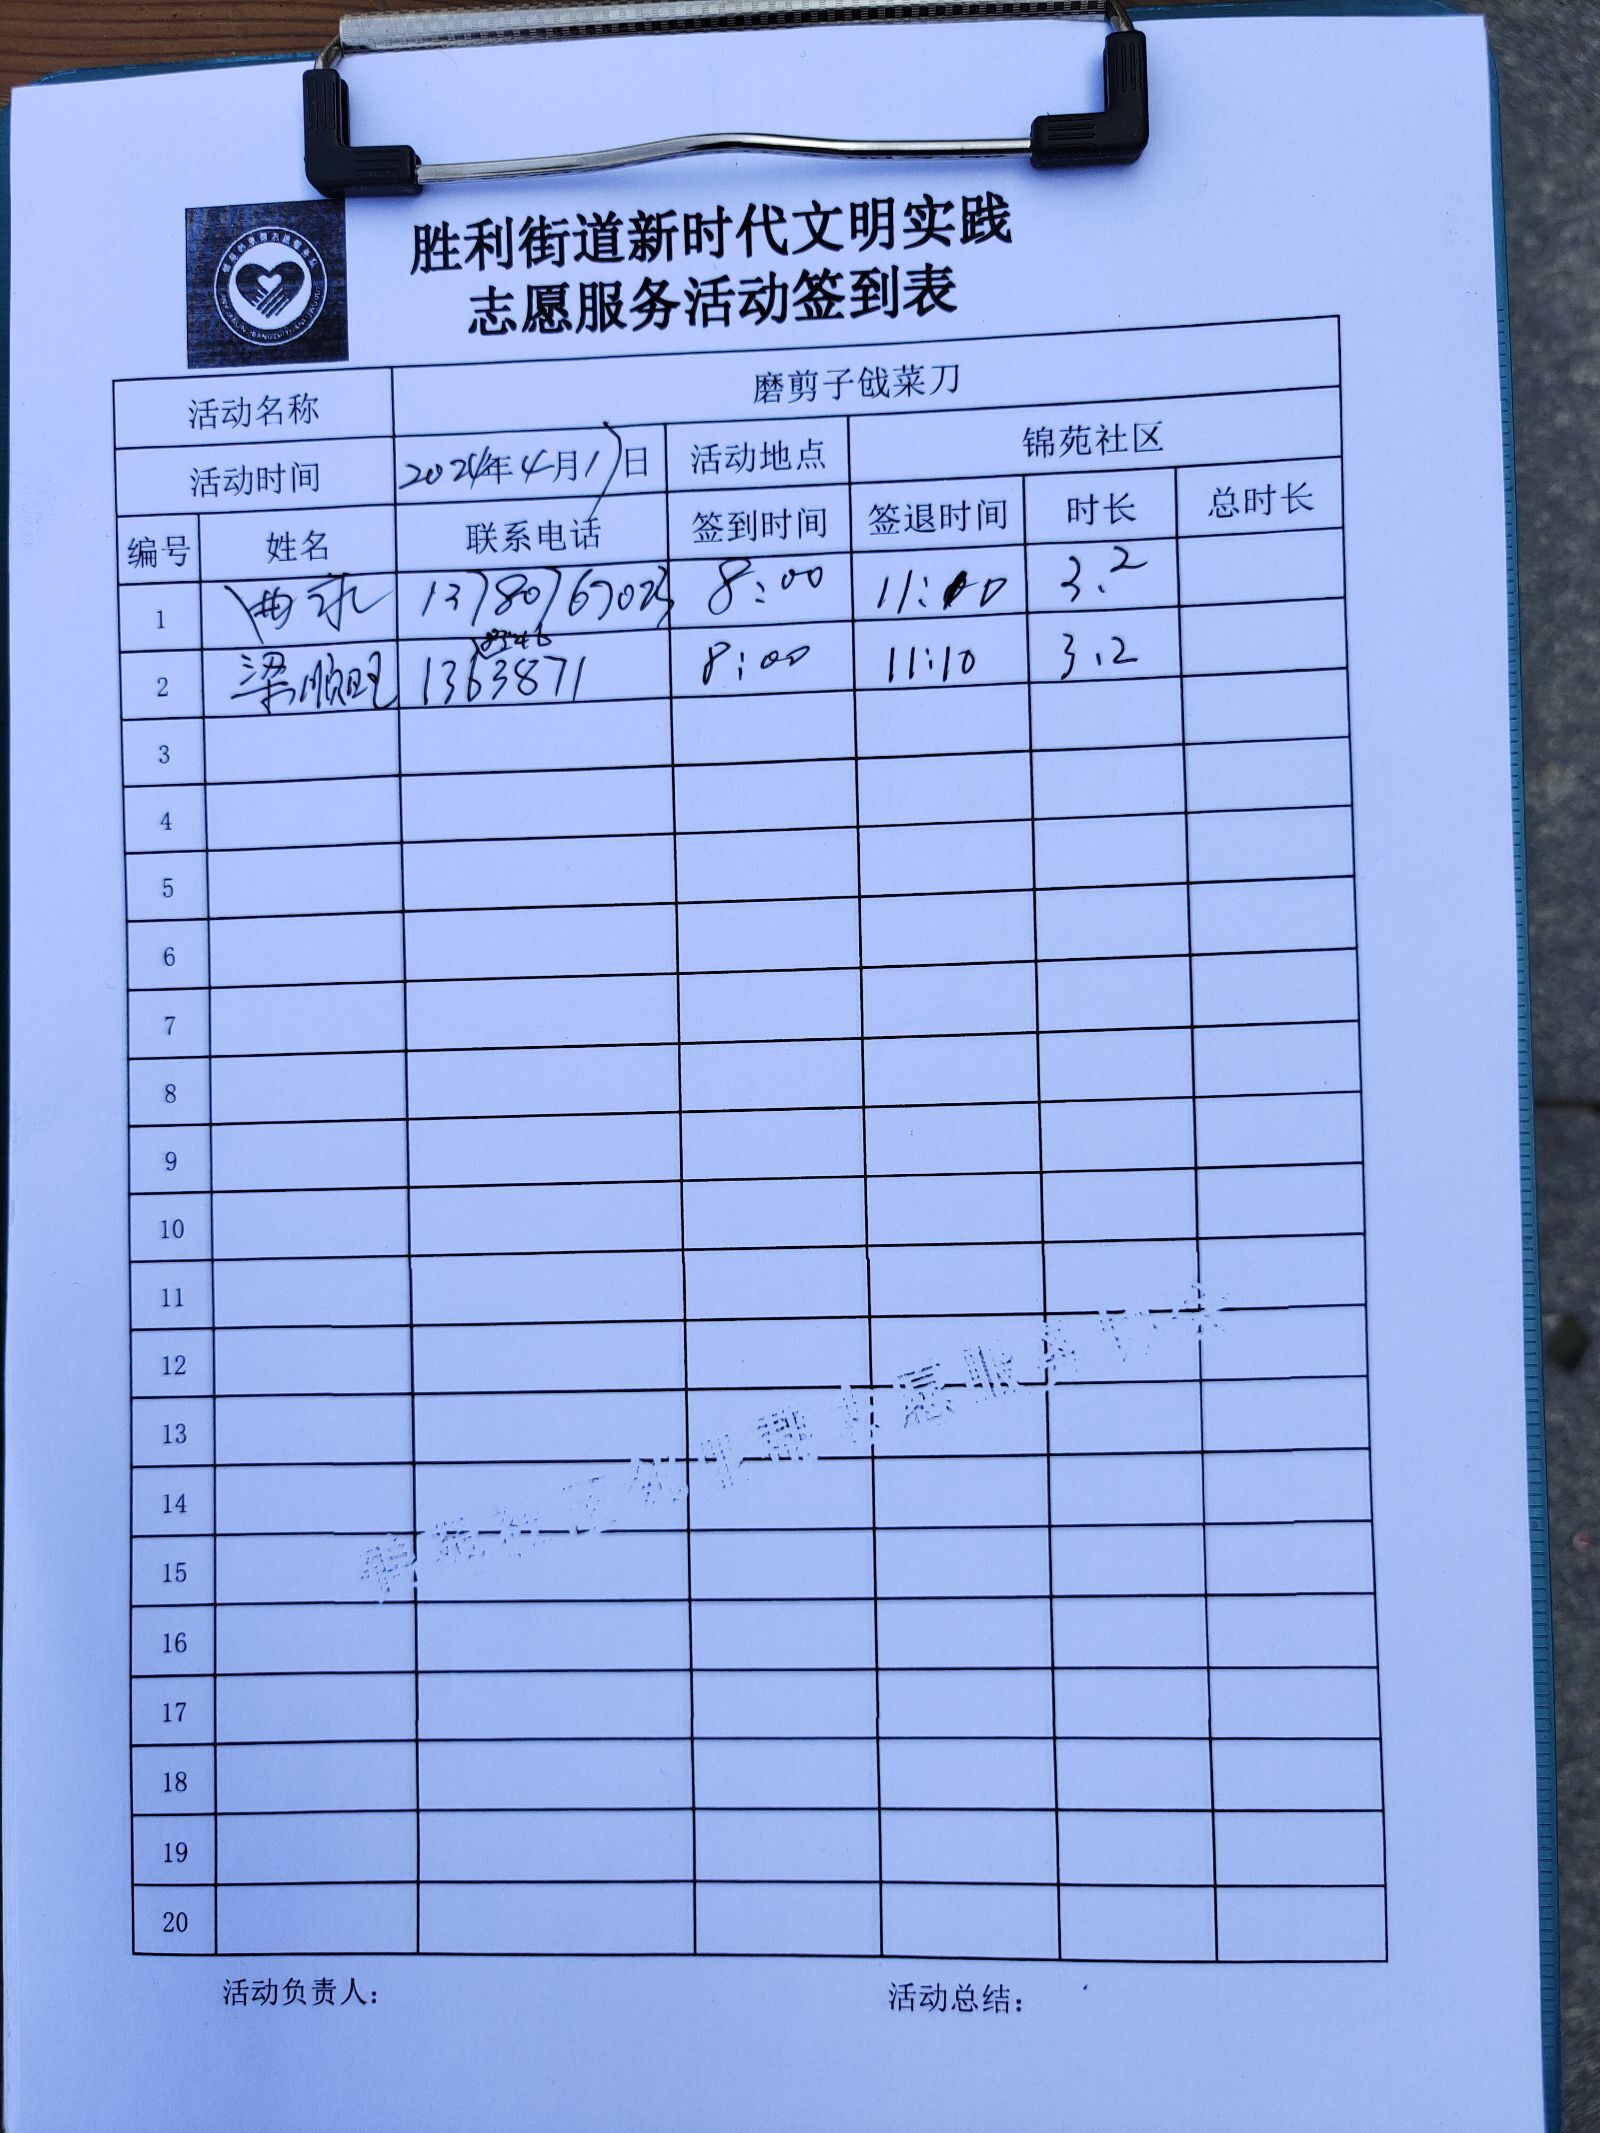 胜利街道新时代文明实践
志愿服务活动签到表
活动名称 磨剪子戗菜刀
活动时间 2024年4月17日 活动地点 锦苑社区
编号 姓名 联系电话 签到时间 签退时间 时长 总时长
1 8:00 3.2
2 梁顺旺 1363871 8:00 11:10 3.2
3
4
5
6
7
8
9
10
11
12
13
14
15
16
17
18
19
20
活动负责人： 活动总结：